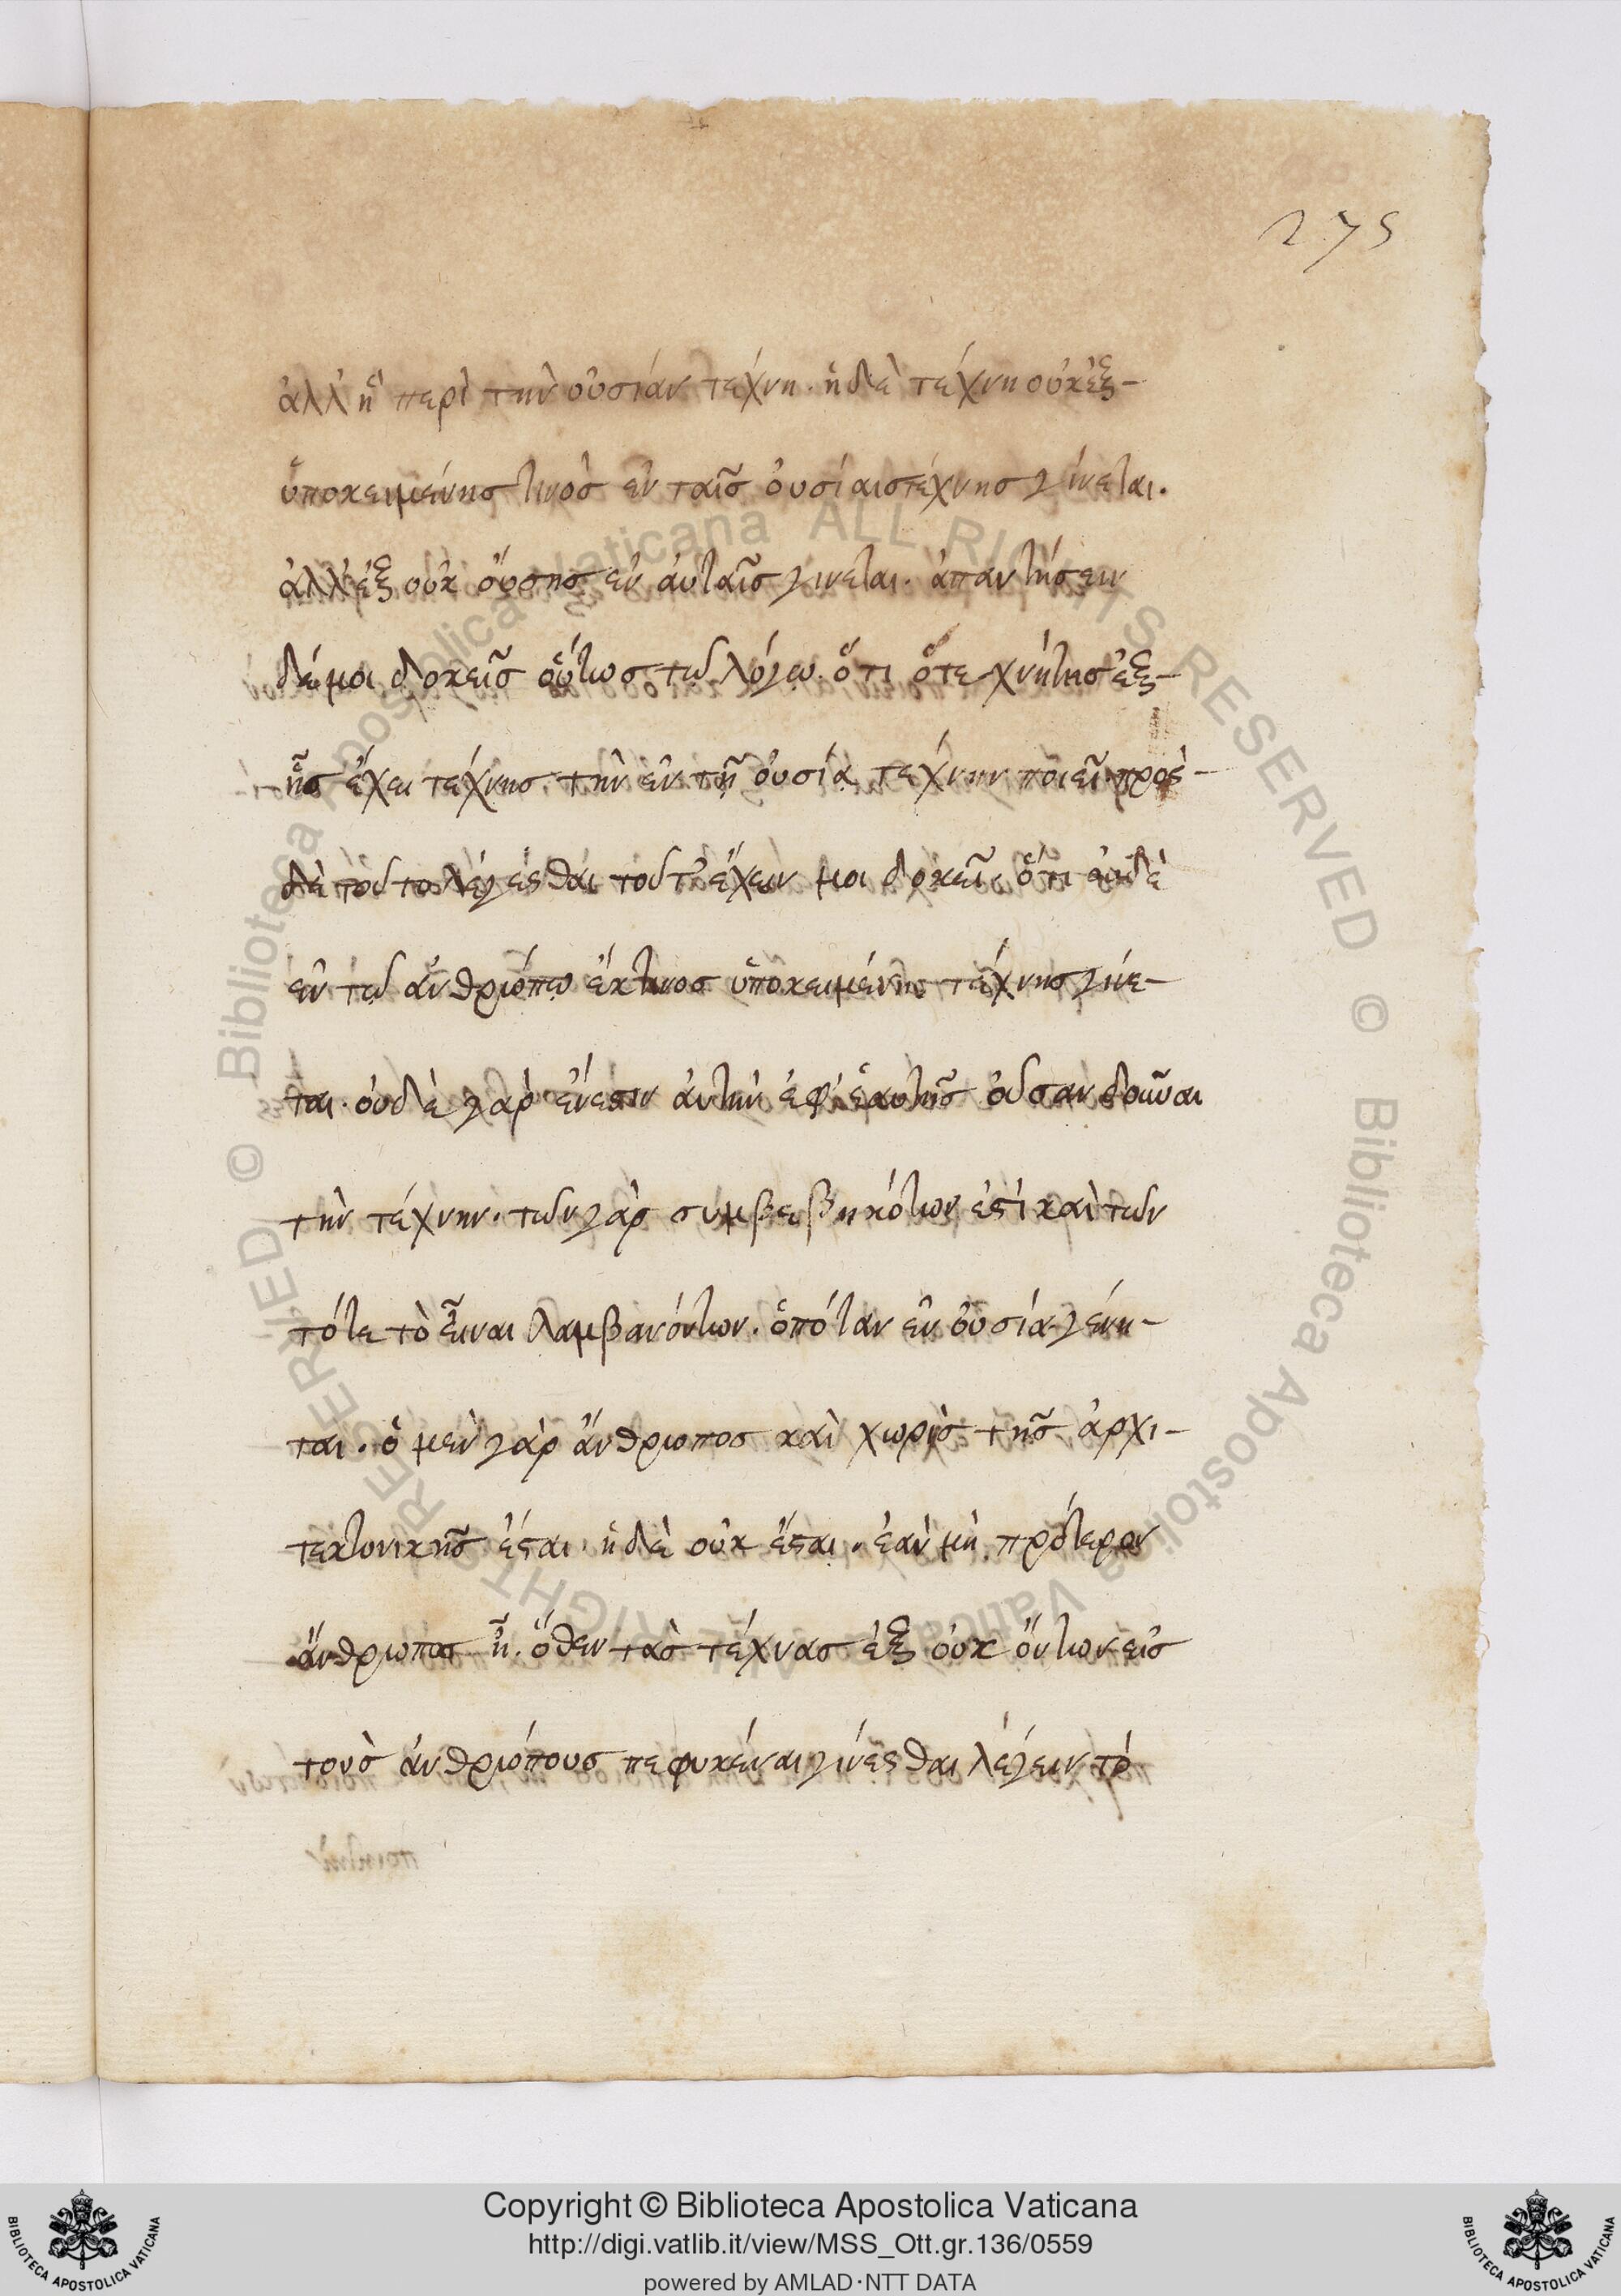 275
ἀλλ' ἡ περὶ τὴν οὐσίαν τέχνη. ἡ δὲ τέχνη οὐκ ἐξ-
ὑποκειμένης τινὸς ἐν ταῖς οὐσίαις τέχνης γίνεται.
ἀλλ' ἐξ οὐκ οὔσης ἐν αὐταῖς γίνεται. ἀπαντήσειν
δέ μοι δοκεῖς οὕτως τῷ λόγῳ. ὅτι ὁ τεχνήτης ἐξ-
ἧς ἔχει τέχνης τὴν ἐν τῇ οὐσίᾳ τέχνην ποιεῖ. πρὸς-
δὲ τοῦτο λέγεσθαι τοῦτ' ἔχειν μοι δοκεῖ, ὅτι οὐδὲ
ἐν τῷ ἀνθρώπῳ ἔκ τινος ὑποκειμένης τέχνης γίνε-
ται. οὐδὲ γὰρ ἔνεστιν αὐτὴν ἐφ' ἑαυτῆς οὖσαν δοῦναι
τὴν τέχνην. τῶν γὰρ συμβεβηκότων ἐστὶ καὶ τῶν
τότε τὸ εἶναι λαμβανόντων. ὁπόταν ἐν οὐσίᾳ γένη-
ται. ὁ μὲν γὰρ ἄνθρωπος καὶ χωρὶς τῆς ἀρχι-
τεκτονικῆς ἔσται. ἡ δὲ οὐκ ἔσται. ἐὰν μὴ πρότερον
ἄνθρωπος ᾖ. ὅθεν τὰς τέχνας ἐξ οὐκ ὄντων εἰς
τοὺς ἀνθρώπους πεφυκέναι γίνεσθαι λέγειν τὸ
Copyright © Biblioteca Apostolica Vaticana
http://digi.vatlib.it/view/MSS_Ott.gr.136/0559
powered by AMLAD·NTT DATA
BIBLIOTECA APOSTOLICA VATICANA
BIBLIOTECA APOSTOLICA VATICANA
© Biblioteca Apostolica Vaticana ALL RIGHTS RESERVED © Biblioteca Apostolica Vaticana ALL RIGHTS RESERVED